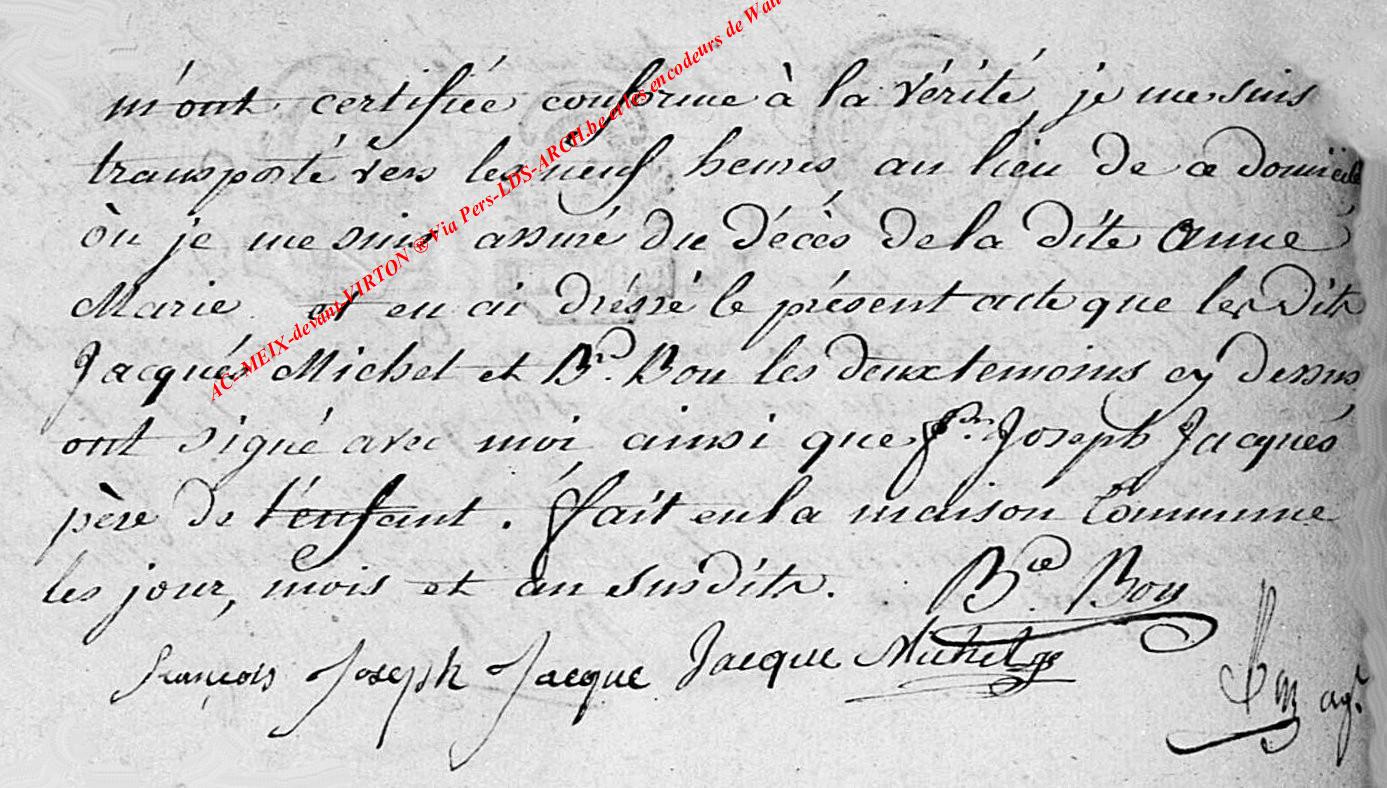 m'ont certifiée conforme à la vérité, je me suis
transporté vers les neuf heures au lieu de ce domicile
où je me suis assuré du décés de la dite Anne
Marie et en ai dréssé le présent acte que les dits
Jacqués Michel et Bd. Bou les deux temoins cy dessus
ont signé avec moi ainsi que fs. Joseph Jacqués
père de l'enfant. fait en la maison Commune
les jour, mois et an susdits. Bce Bou
françois Joseph Jacque Jacque Michel
agt
AC-MEIX-devant-VIRTON ® Via Pers-LDS-ARCH.be et les encodeurs de Wal